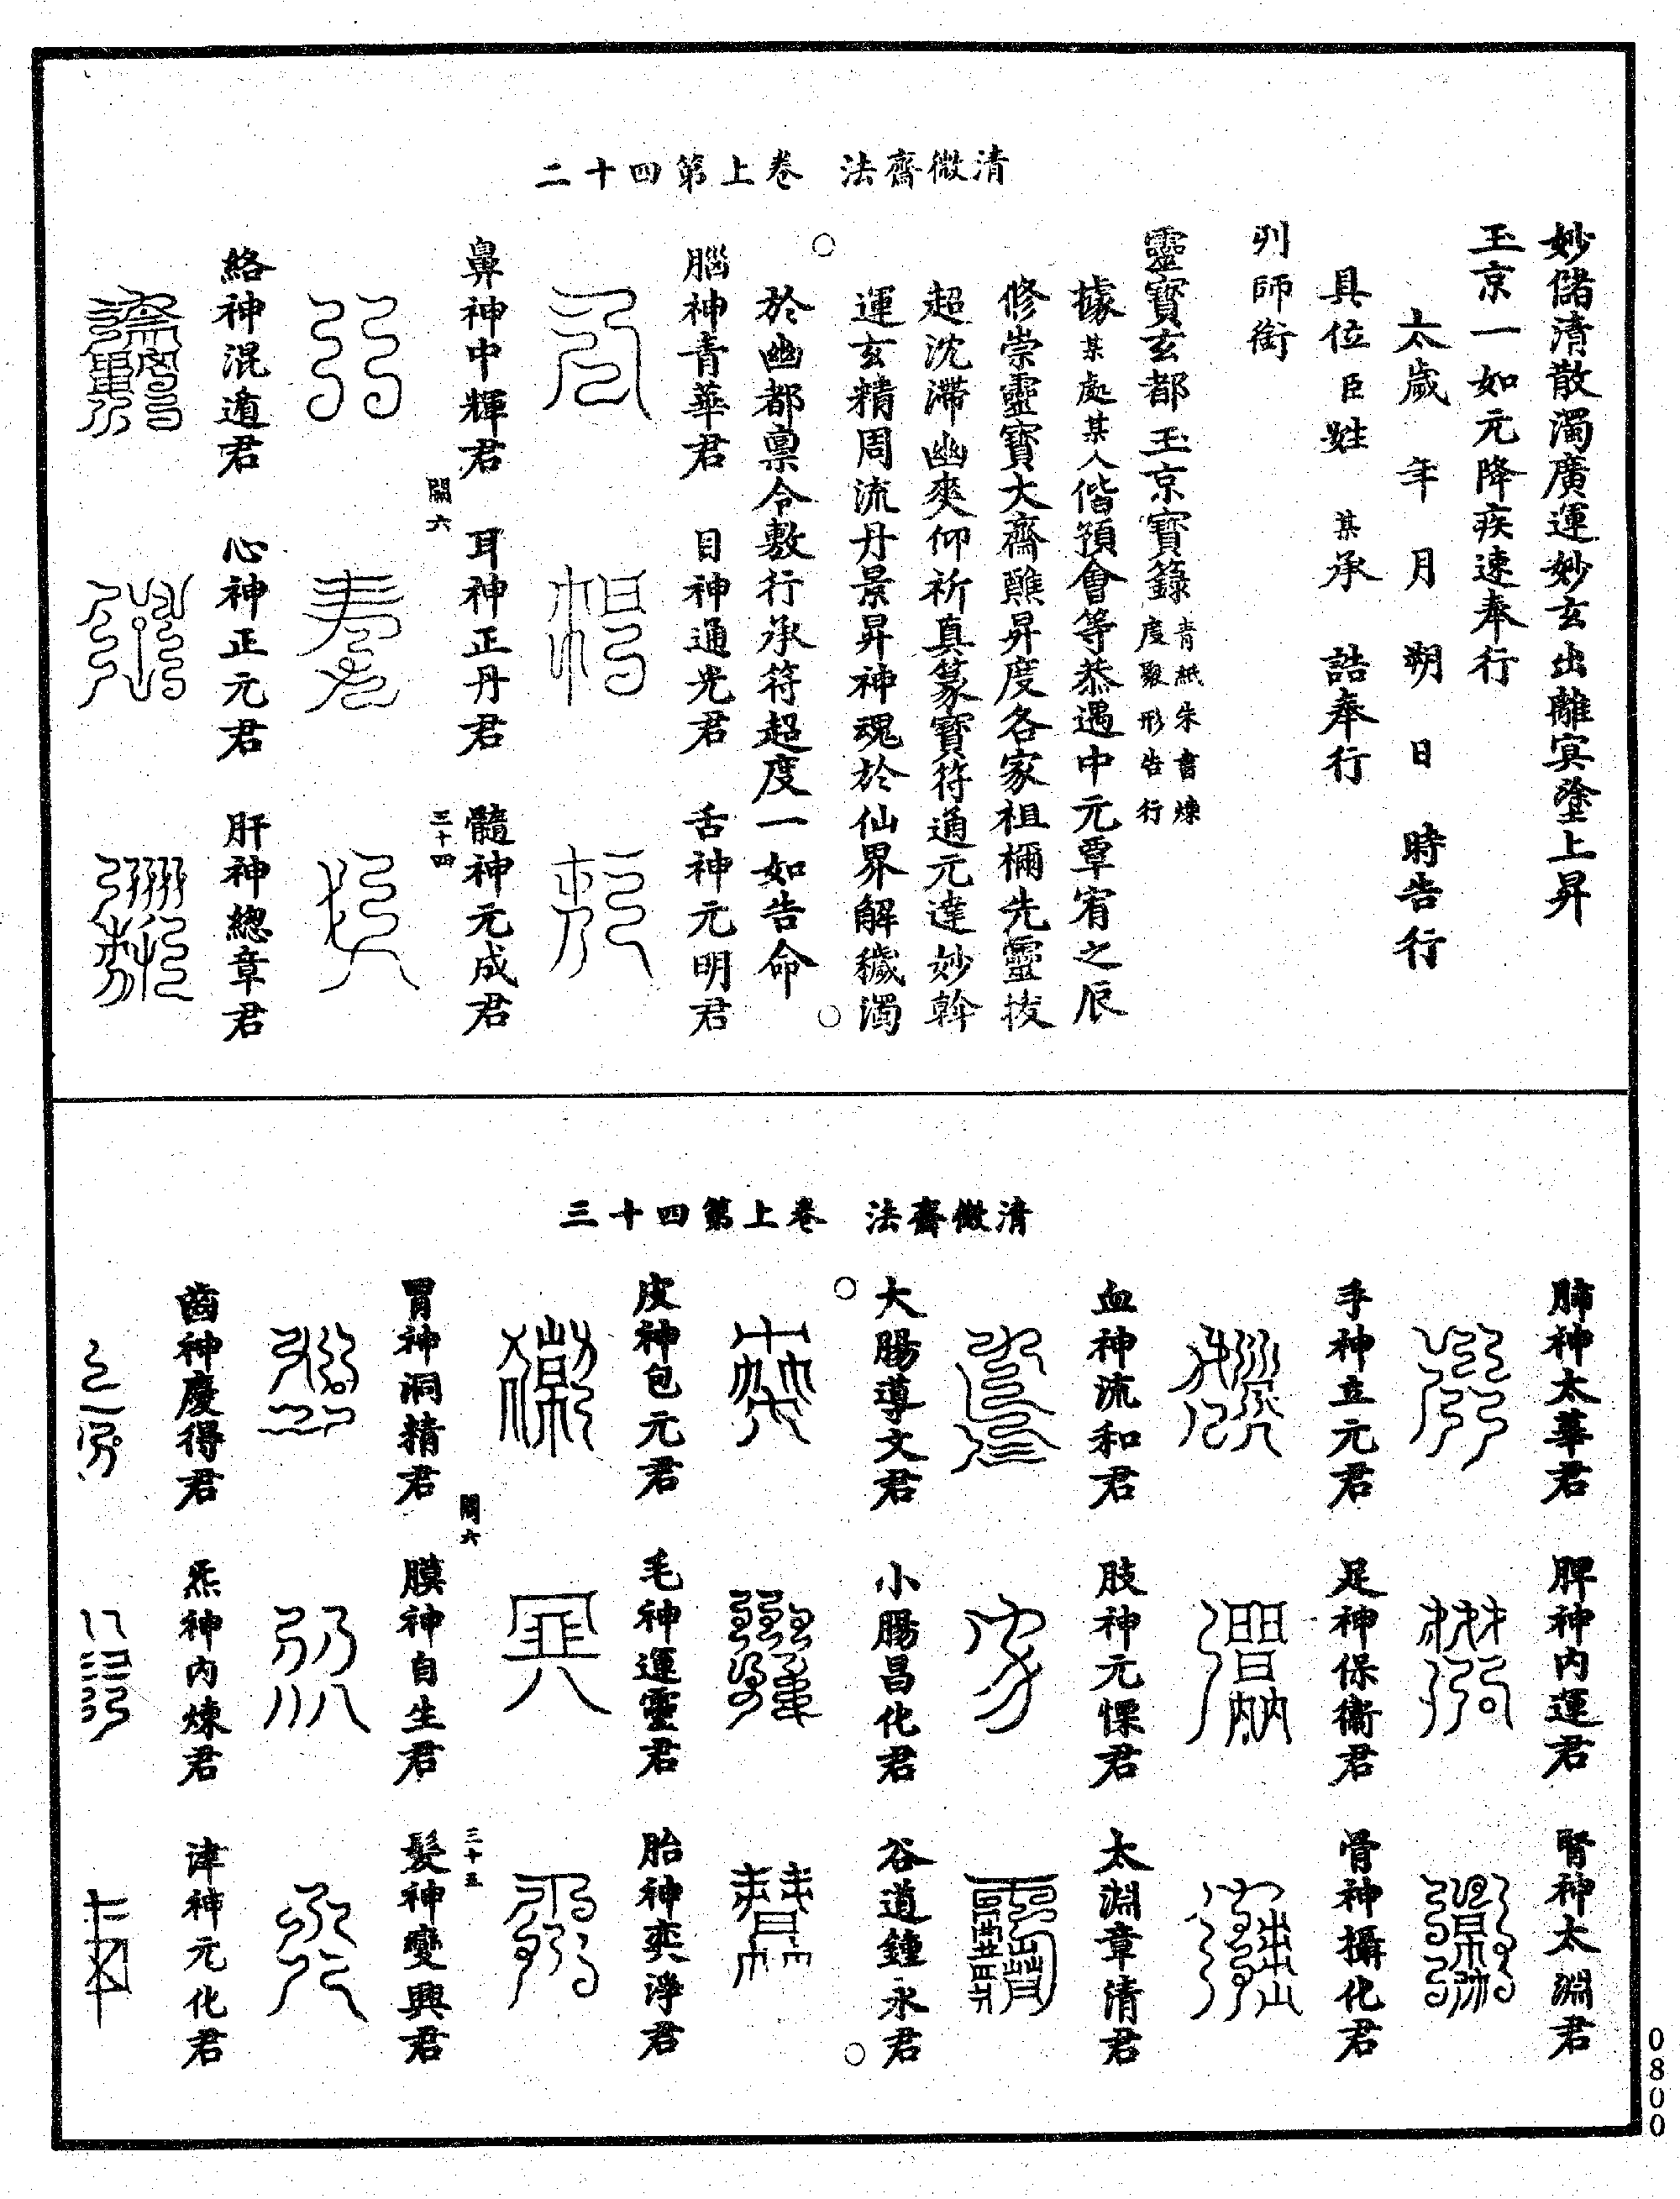 清微齋法　卷上第四十二
妙儲清散濁廣運妙玄出離冥塗上昇
玉京一如元降疾速奉行
太歲　年　月　朔　日　時告行
具位臣姓　某承　誥奉行
列師銜
靈寶玄都玉京寶籙青紙朱書煉度聚形告行
據某處某人偕預會等恭遇中元覃宥之辰
修崇靈寶大齋醮昇度各家祖禰先靈拔
超沈滯幽爽仰祈真篆寶符通元達妙斡
運玄精周流丹景昇神魂於仙界解穢濁
於幽都稟令敷行承符超度一如告命
腦神青華君　目神通光君　舌神元明君
鼻神中輝君　耳神正丹君　髓神元成君
關六　三十四
絡神混遁君　心神正元君　肝神總章君
清微齋法　卷上第四十三
肺神太華君　脾神內運君　腎神太淵君
手神立元君　足神保衞君　骨神攝化君
血神流和君　肢神元慄君　太淵章清君
大腸導文君　小腸昌化君　谷道鍾永君
皮神包元君　毛神運靈君　胎神奕淨君
關六　三十五
胃神洞精君　膜神自生君　髮神變興君
齒神慶得君　炁神內煉君　津神元化君
0800